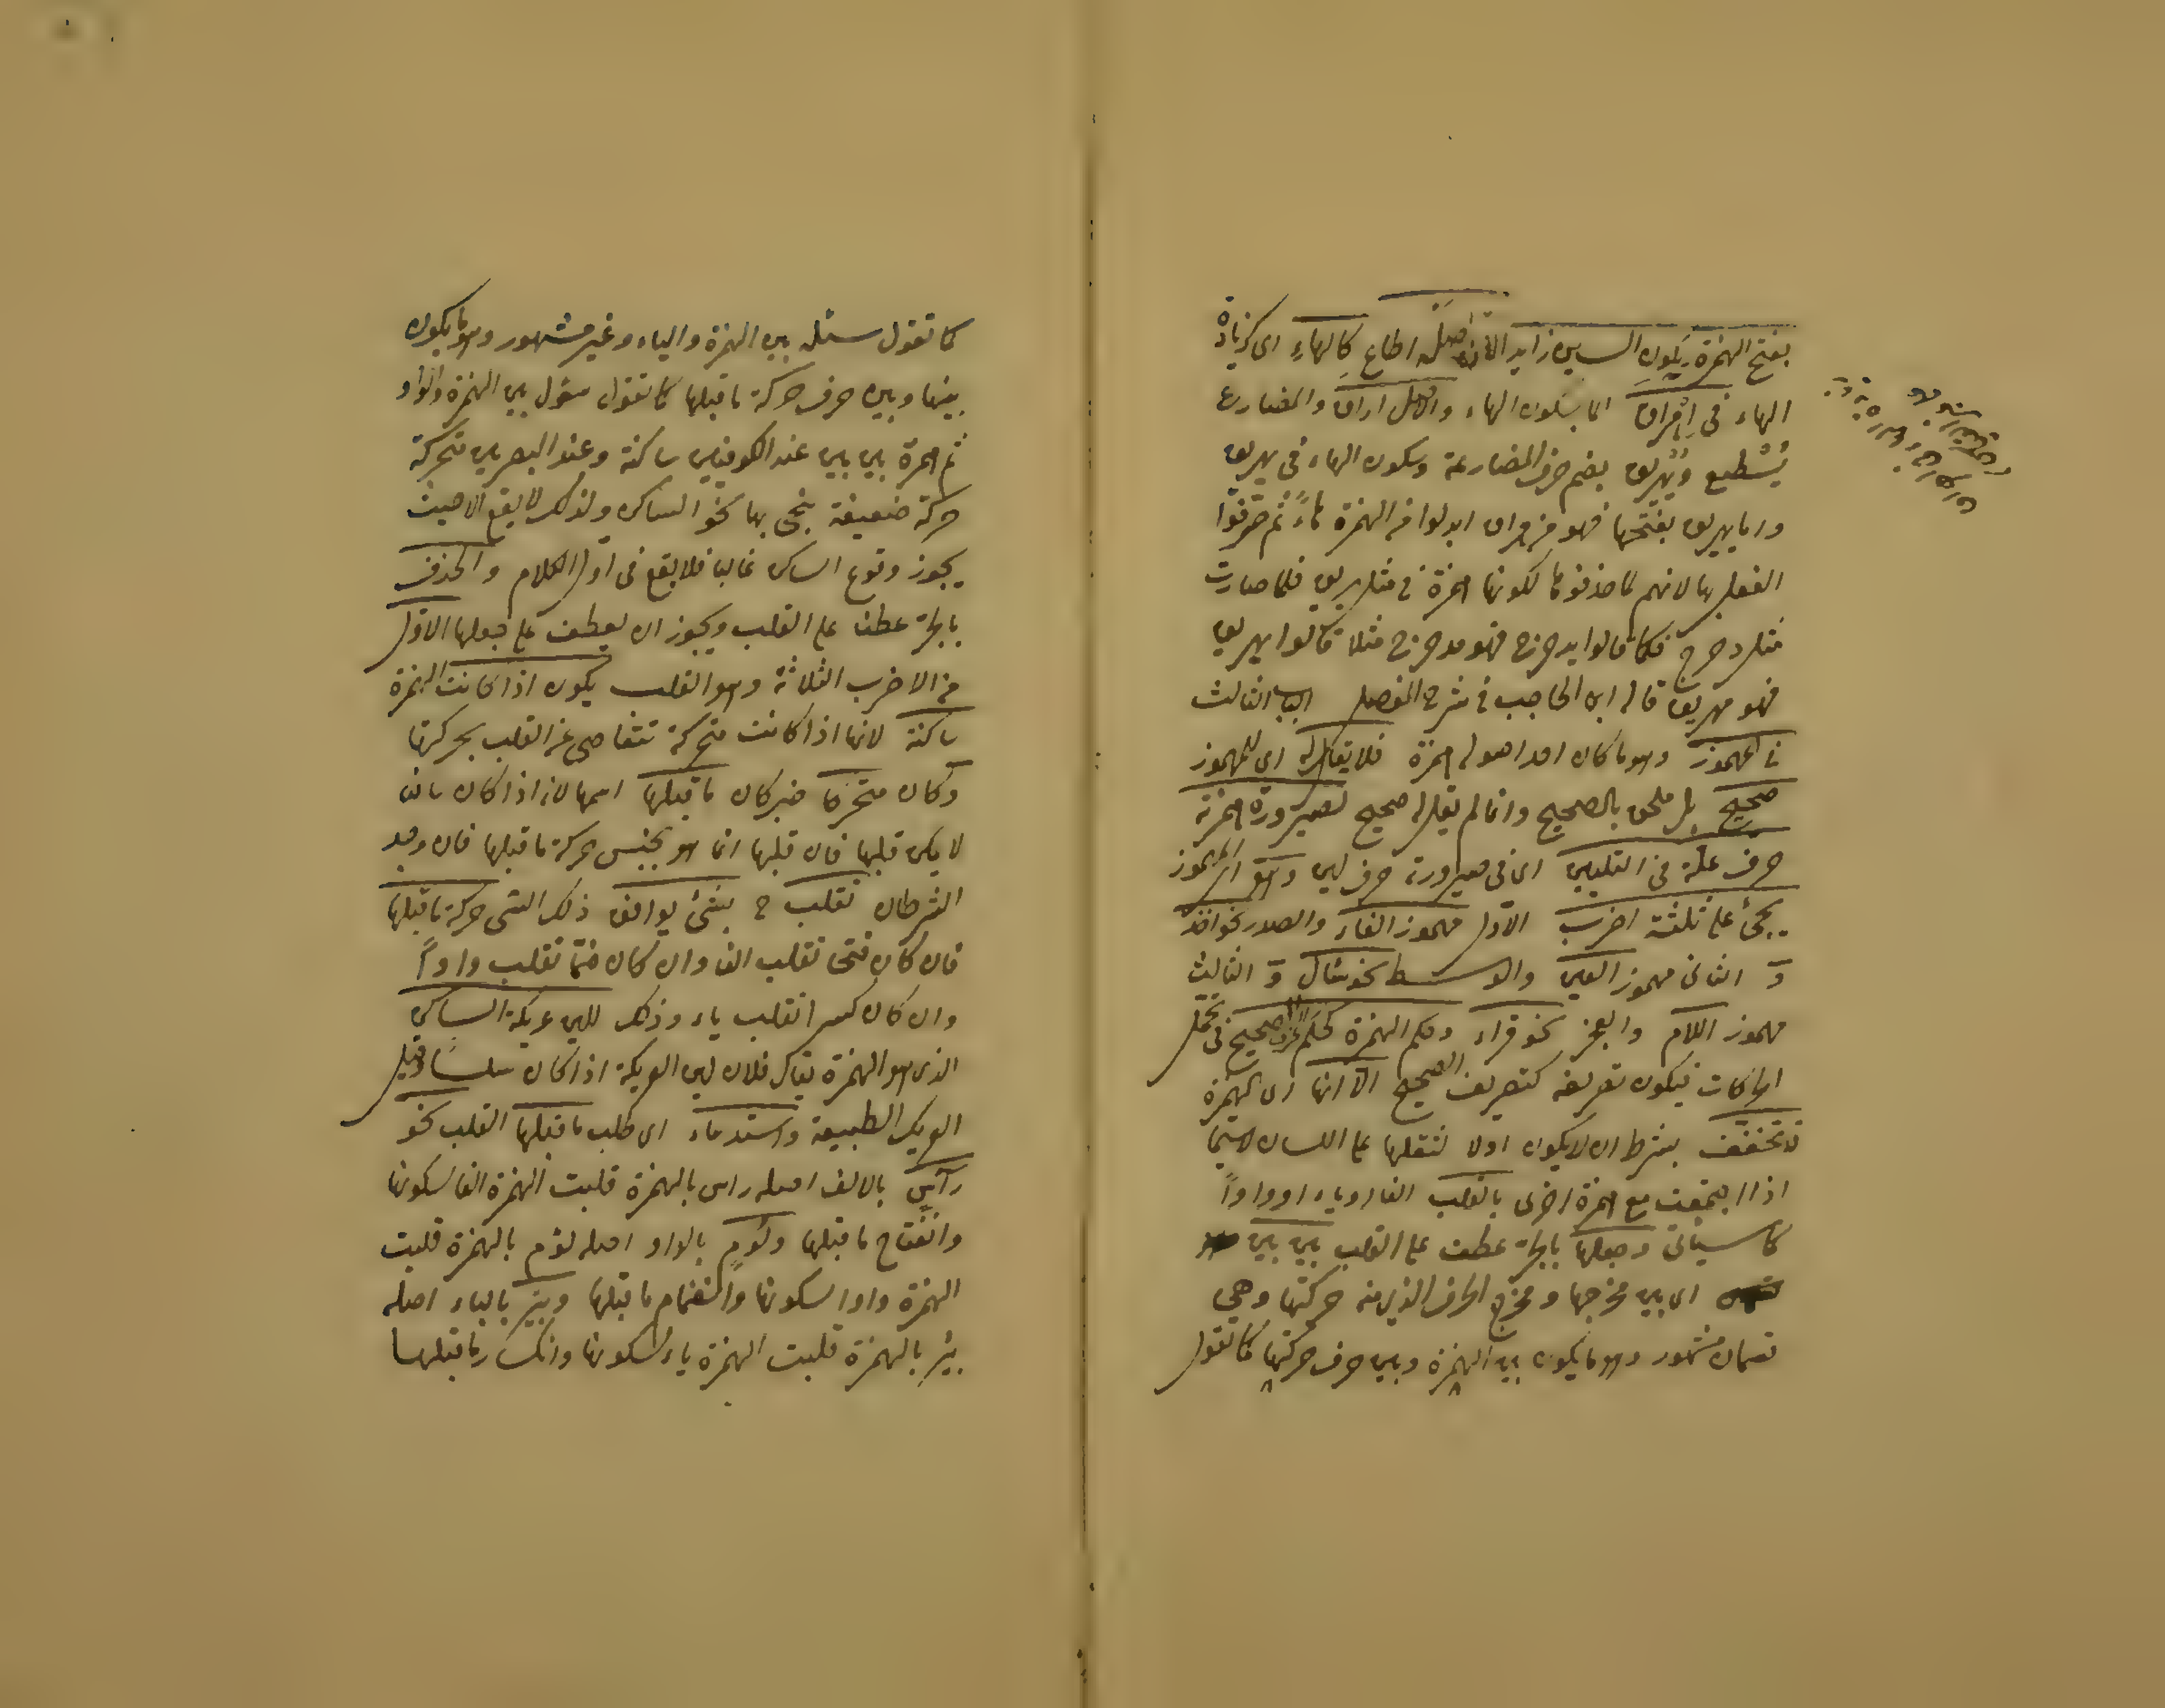 بفتح الهمزة يكون السين زايدا لانه اصله اطاع كالهاء اى كزيادة
الهاء فى اهراق انما بسكون الهاء والاصل اراق والمضارع
يُسْطيع ويُهْريق بضم حرف المضارعة وسكون الهاء فى يهريق
واما يهريق بفتحها فهو من هراق ابدلوا من الهمزة هاءً ثم
الفعل بها لانهم لما حذفوها لكونها همزة فى مثل يريق فلما صارت
مثل دحرج فكما قالوا يدحرج فهو مدحرج مثلا قالوا يهريق
فهو مهريق قاله ابن الحاجب فى شرح المفصل الباب الثالث
فى المهموز وهو ما كان احد اصوله همزة فلا يقال له اى للمهموز
صحيح بل ملحق بالصحيح وانما لم يقل له صحيح لصيرورة همزته
حرف علة فى التليين اى فى صيرورته حرف لين وهو اى المهموز
يجئ على ثلثة اضرب الاول مهموز الفاء والصدر نحو اخذ
و الثانى مهموز العين والوسط نحو سأل و الثالث
مهموز اللام والعجز نحو قراء وحكم الهمزة كحكم الحرف الصحيح فى تحمل
الحركات فيكون تصريفه كتصريف الصحيح الا انها اى الهمزة
قد تخفف بشرط ان لا يكون اولا لثقلها على اللسان لا سيما
اذا اجتمعت مع همزة اخرى بالقلب الفا او ياء او واواً
كما سيأتى وجعلها بالجر عطف على القلب بين بين
اى بين مخرجها ومخرج الحرف الذى منه حركتها وهى
قسمان مشهور وهو ما يكون بين الهمزة وبين حرف حركتها كما تقول
كما تقول سئل بين الهمزة والياء وغير مشهور وهو ما يكون
بينها وبين حرف حركة ما قبلها كما تقول سؤل بين الهمزة والواو
ثم همزة بين بين عند الكوفيين ساكنة وعند البصريين متحركة
حركة ضعيفة ينحى بها نحو الساكن ولذلك لا يقع الا حيث
يجوز وقوع الساكن غالبا فلا يقع فى اول الكلام والحذف
بالجر عطف على القلب ويجوز ان يعطف على جعلها الاول
من الاضرب الثلاثة وهو القلب يكون اذا كانت الهمزة
ساكنة لانها اذا كانت متحركة تتعاصى عن القلب بحركتها
وكان متحركا خبر كان ما قبلها اسمها لانه اذا كان ساكنا
لا يمكن قلبها فان قلبها انما هو بجنس حركة ما قبلها فان وجد
الشرطان تقلب ح بشئ يوافق ذلك الشئ حركة ما قبلها
فان كان فتحا تقلب الفا وان كان ضمّا تقلب واواً
وان كان كسرا تقلب ياء وذلك للين عريكة الساكن
الذى هو الهمزة يقال فلان لين العريكة اذا كان سلسا وقيل
العريكة الطبيعة واستدعاء اى طلب ما قبلها القلب نحو
راس بالالف اصله رأس بالهمزة قلبت الهمزة الفا لسكونها
وانفتاح ما قبلها ولوم بالواو اصله لؤم بالهمزة قلبت
الهمزة واوا لسكونها وانضمام ما قبلها وبير بالياء اصله
بئر بالهمزة قلبت الهمزة ياء لسكونها وانكسار ما قبلها